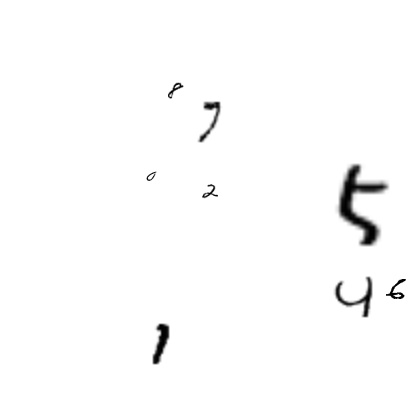 8
7
0 2
5
4 6
1